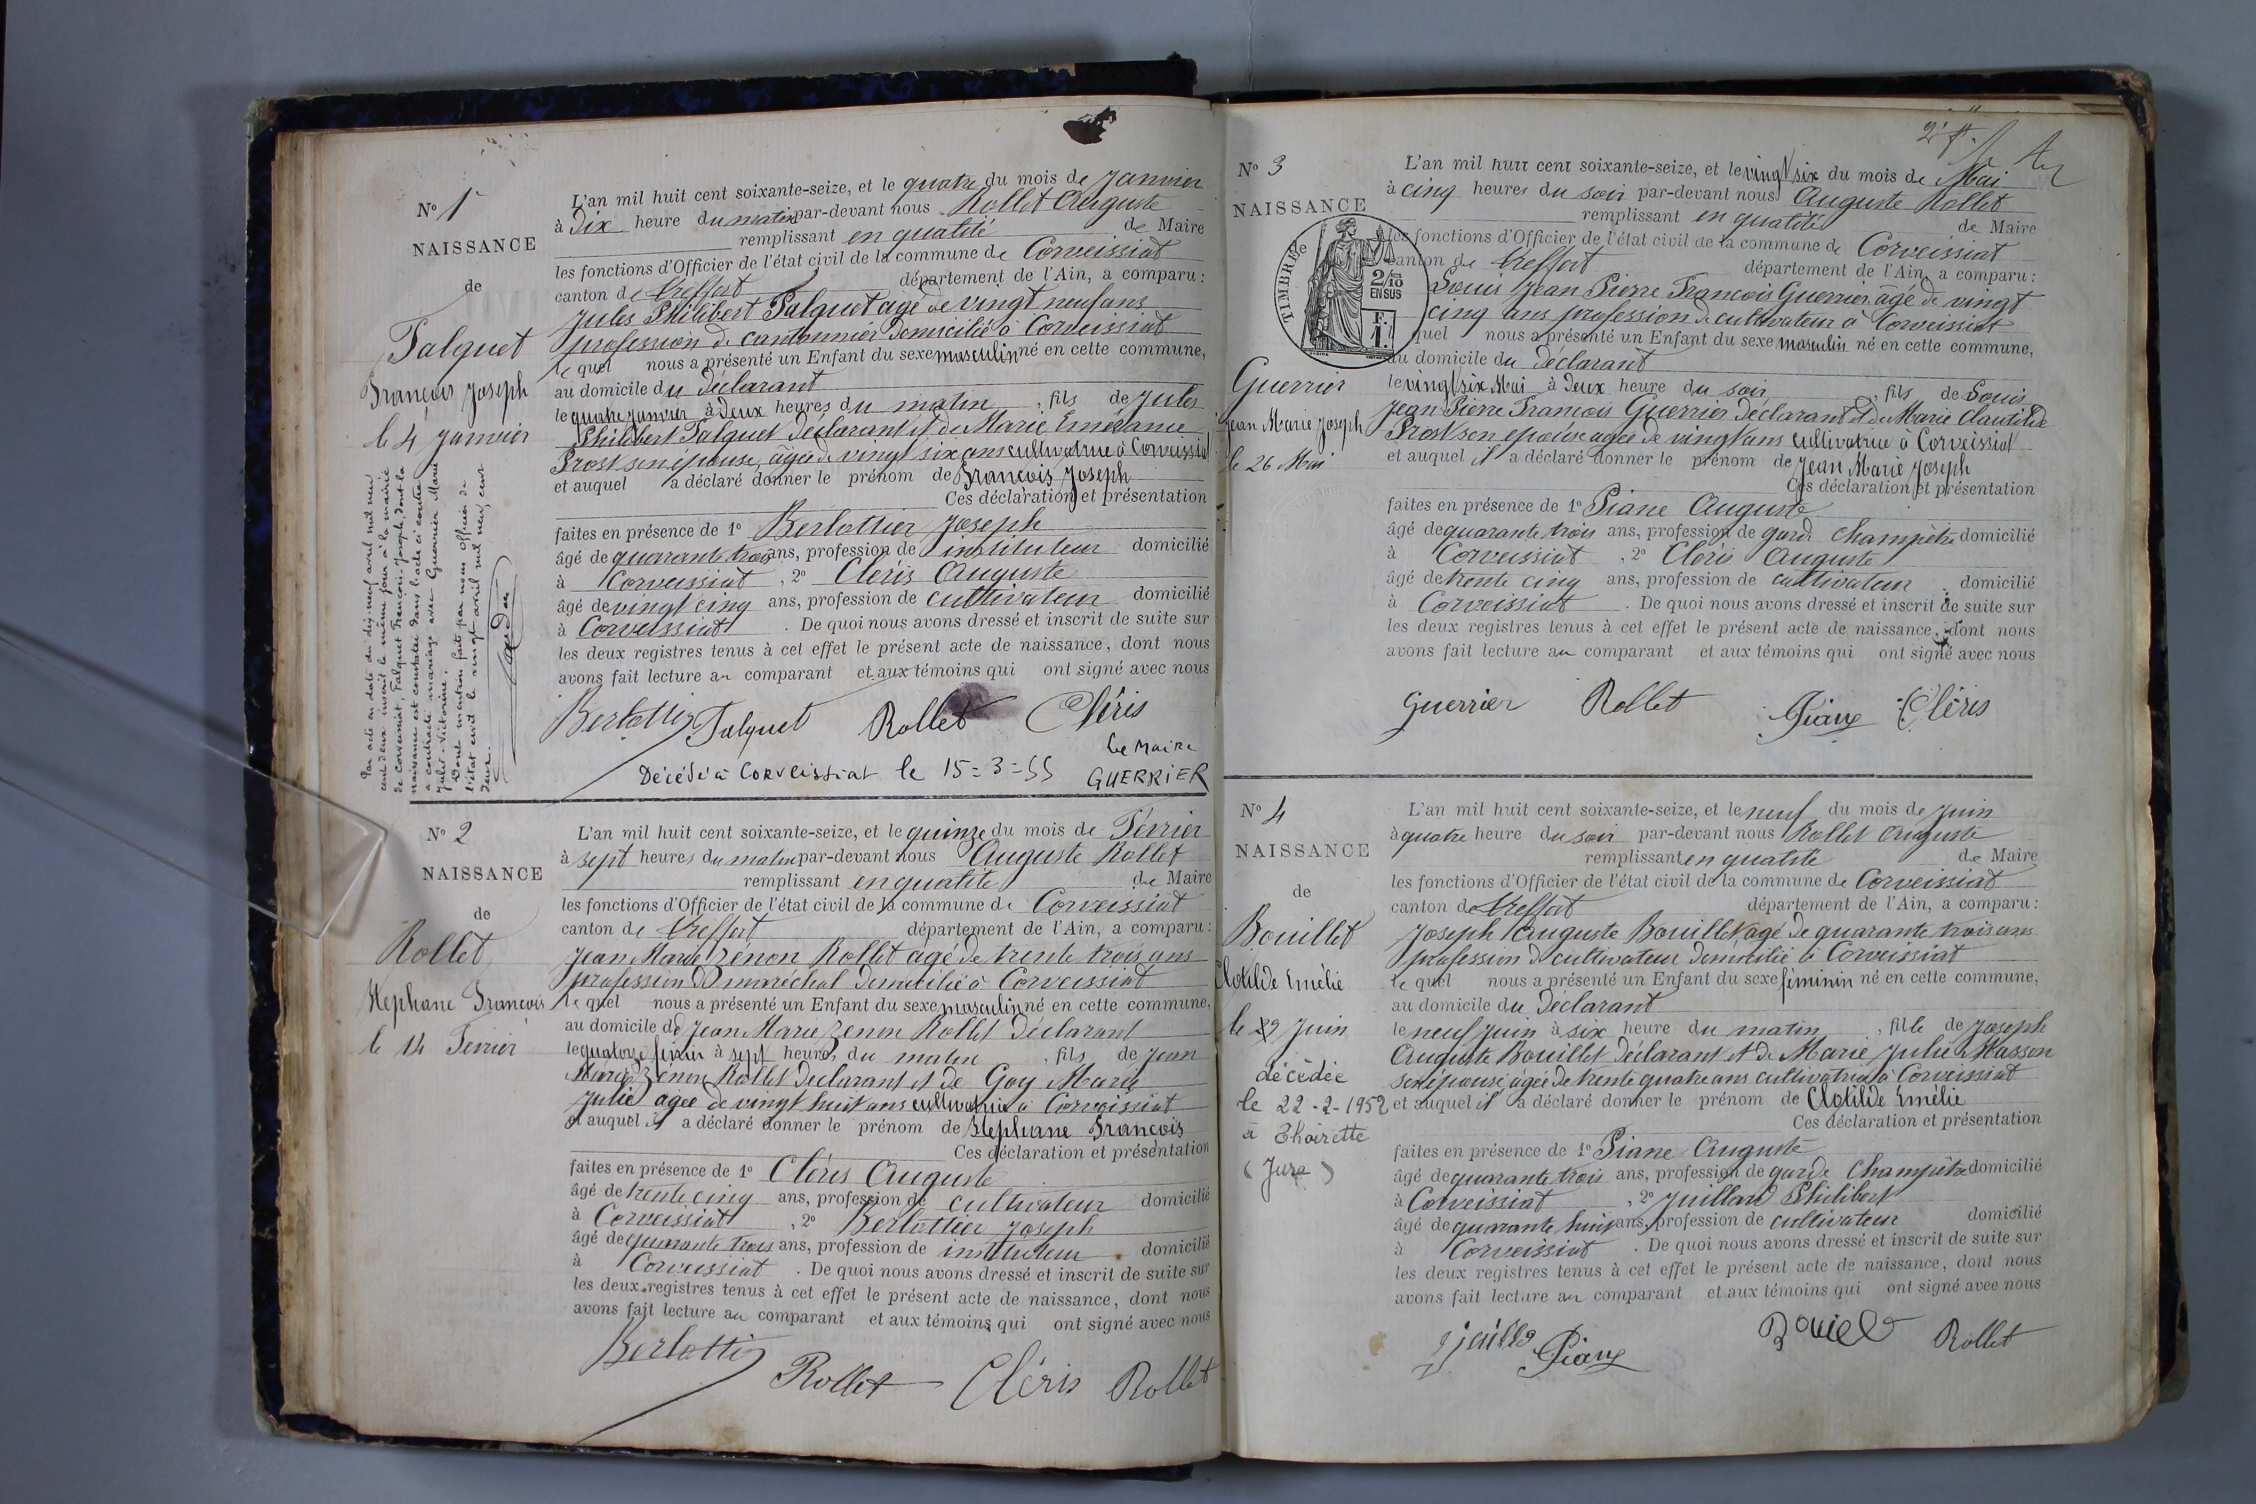 N° 1
NAISSANCE
de
Falquet
François Joseph
le 4 Janvier
Par acte en date du dix neuf avril mil neuf
cent deux inscrit le même jour à la mairie
de Corveissiat, Falquet François-Joseph, dont la
naissance est constatée dans l'acte ci contre
a contracté mariage avec Guerrier Marie
Julie-Victorine;
Dont mention faite par nous officier de
l'état civil le vingt avril mil neuf cent
deux.
L'an mil huit cent soixante-seize, et le quatre du mois de Janvier
à Dix heure du matin par-devant nous Rollet Auguste
remplissant en qualité de Maire
les fonctions d'Officier de l'état civil de la commune de Corveissiat
canton de Treffort département de l'Ain, a comparu:
Jules Philibert Falquet agé de vingt neuf ans
profession de cantonnier domicilié à Corveissiat
le quel nous a présenté un Enfant du sexe masculin né en cette commune,
au domicile du déclarant
le quatre janvier à deux heures du matin, fils de Jules
Philibert Falquet déclarant et de Marie Emérance
Prost son épouse, agée de vingt six ans cultivatrice à Corveissiat
et auquel a déclaré donner le prénom de François Joseph
Ces déclaration et présentation
faites en présence de 1° Berlottier Joseph
âgé de quarante trois ans, profession de instituteur domicilié
à Corveissiat, 2° Cléris Auguste
âgé de vingt cinq ans, profession de cultivateur domicilié
à Corveissiat. De quoi nous avons dressé et inscrit de suite sur
les deux registres tenus à cet effet le présent acte de naissance, dont nous
avons fait lecture au comparant et aux témoins qui ont signé avec nous
Berlottier Falquet Rollet Cléris
Décédé à Corveissiat le 15=3=55
Le Maire
GUERRIER
N° 2
NAISSANCE
de
Rollet
Stephane François
le 14 Février
L'an mil huit cent soixante-seize, et le quinze du mois de Février
à sept heures du matin par-devant nous Auguste Rollet
remplissant en qualité de Maire
les fonctions d'Officier de l'état civil de la commune de Corveissiat
canton de Treffort département de l'Ain, a comparu:
Jean Marie Zénon Rollet agé de trente trois ans
profession de maréchal domicilié à Corveissiat
le quel nous a présenté un Enfant du sexe masculin né en cette commune,
au domicile de Jean Marie Zénon Rollet déclarant
le quatorze février à sept heures du matin, fils de Jean
Marie Zénon Rollet déclarant et de Goy Marie
Julie agée de vingt huit ans cultivatrice à Corveissiat
et auquel il a déclaré donner le prénom de Stephane François
Ces déclaration et présentation
faites en présence de 1° Cléris Auguste
âgé de trente cinq ans, profession de cultivateur domicilié
à Corveissiat, 2° Berlottier Joseph
âgé de quarante trois ans, profession de instituteur domicilié
à Corveissiat. De quoi nous avons dressé et inscrit de suite sur
les deux registres tenus à cet effet le présent acte de naissance, dont nous
avons fait lecture au comparant et aux témoins qui ont signé avec nous
Berlottier Rollet Cléris Rollet
N° 3
NAISSANCE
TIMBRE
2/10
EN SUS
F.
1.
Guerrier
Jean Marie Joseph
le 26 Mai
L'an mil huit cent soixante-seize, et le vingt six du mois de Mai
à cinq heures du soir par-devant nous Auguste Rollet
remplissant en qualité de Maire
les fonctions d'Officier de l'état civil de la commune de Corveissiat
canton de Treffort département de l'Ain, a comparu:
Louis Jean Pierre François Guerrier âgé de vingt
cinq ans profession de cultivateur à Corveissiat
quel nous a présenté un Enfant du sexe masculin né en cette commune,
au domicile du déclarant
le vingt six Mai à deux heure du soir, fils de Louis
Jean Pierre François Guerrier déclarant et de Marie Clautilde
Prost son epouse agée de vingt ans cultivatrice à Corveissiat
et auquel il a déclaré donner le prénom de Jean Marie Joseph
Ces déclaration et présentation
faites en présence de 1° Piane Auguste
âgé de quarante trois ans, profession de garde champêtre domicilié
à Corveissiat, 2° Cléris Auguste
âgé de trente cinq ans, profession de cultivateur domicilié
à Corveissiat. De quoi nous avons dressé et inscrit de suite sur
les deux registres tenus à cet effet le présent acte de naissance, dont nous
avons fait lecture au comparant et aux témoins qui ont signé avec nous
Guerrier Rollet Piane Cléris
N° 4
NAISSANCE
de
Bouillet
Clotilde Emélie
le 9 Juin
décédée
le 22-2-1952
à Thoirette
(Jura)
L'an mil huit cent soixante-seize, et le neuf du mois de Juin
à quatre heure du soir par-devant nous Rollet Auguste
remplissant en qualité de Maire
les fonctions d'Officier de l'état civil de la commune de Corveissiat
canton de Treffort département de l'Ain, a comparu:
Joseph Auguste Bouillet, agé de quarante trois ans
profession de cultivateur domicilié à Corveissiat
le quel nous a présenté un Enfant du sexe féminin né en cette commune,
au domicile du déclarant
le neuf juin à six heure du matin, fille de Joseph
Auguste Bouillet déclarant et de Marie Julie Masson
son épouse, agée de trente quatre ans cultivatrice à Corveissiat
et auquel il a déclaré donner le prénom de Clotilde Emélie
Ces déclaration et présentation
faites en présence de 1° Piane Auguste
âgé de quarante trois ans, profession de garde champêtre domicilié
à Corveissiat, 2° Juillard Philibert
âgé de quarante huit ans, profession de cultivateur domicilié
à Corveissiat. De quoi nous avons dressé et inscrit de suite sur
les deux registres tenus à cet effet le présent acte de naissance, dont nous
avons fait lecture au comparant et aux témoins qui ont signé avec nous
Piane Rollet